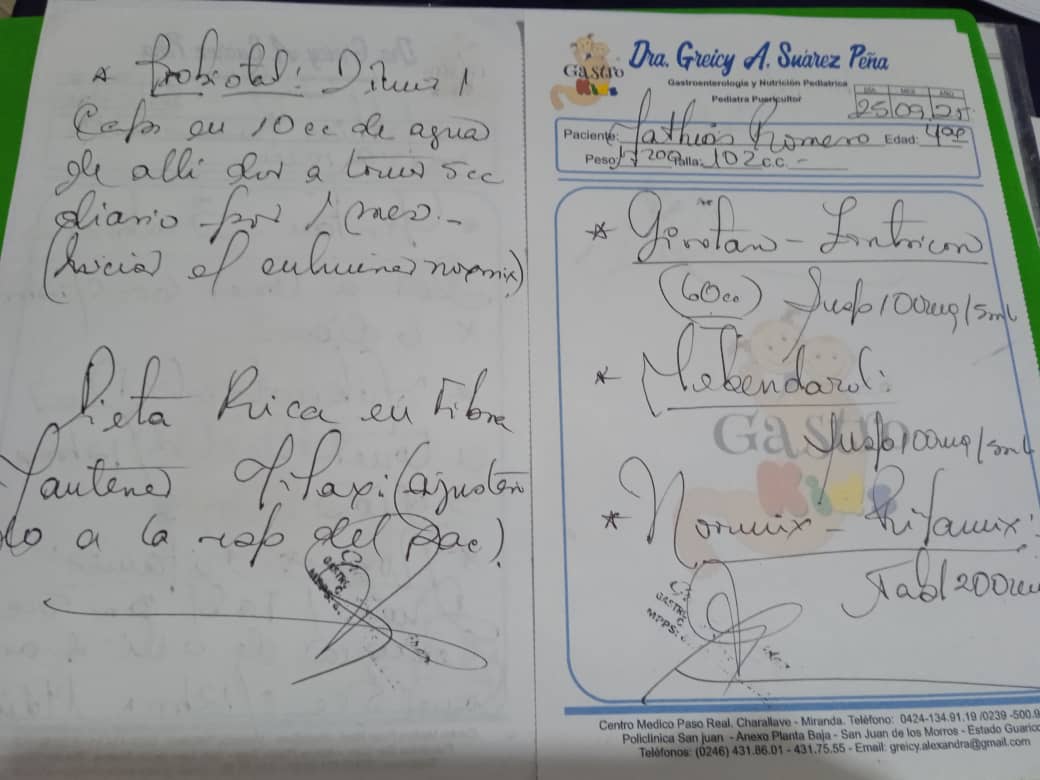 * Probiotal: Diluir 1
Caps en 10cc de agua
de alli dar a tomar 5cc
diario por 1 mes.-
(Iniciar al culminar normix)
Dieta Rica en Fibra
Mantener (ajustan
do a la resp del Pac).
Dra. Greicy A. Suárez Peña
Gastro Kids
Gastroenterología y Nutrición Pediatrica
Pediatra Puericultor
DIA MES AÑO
25 09 25
Paciente: Mathias Romero Edad: 4
Peso: 17200 Talla: 102 c.c.-
* Ginotan - Lintricon
(60cc) Susp 100mg/5mL
* Mebendazol:
Susp 100mg/5mL
Gastro Kids
* Normix - Rifamix:
Tabl 200
GASTR
MPPS:
GASTR
MPPS:
Centro Medico Paso Real. Charallave - Miranda. Teléfono: 0424-134.91.19 /0239 -500.9
Policlinica San juan - Anexo Planta Baja - San Juan de los Morros - Estado Guaric
Teléfonos: (0246) 431.86.01 - 431.75.55 - Email: greicy.alexandra@gmail.com